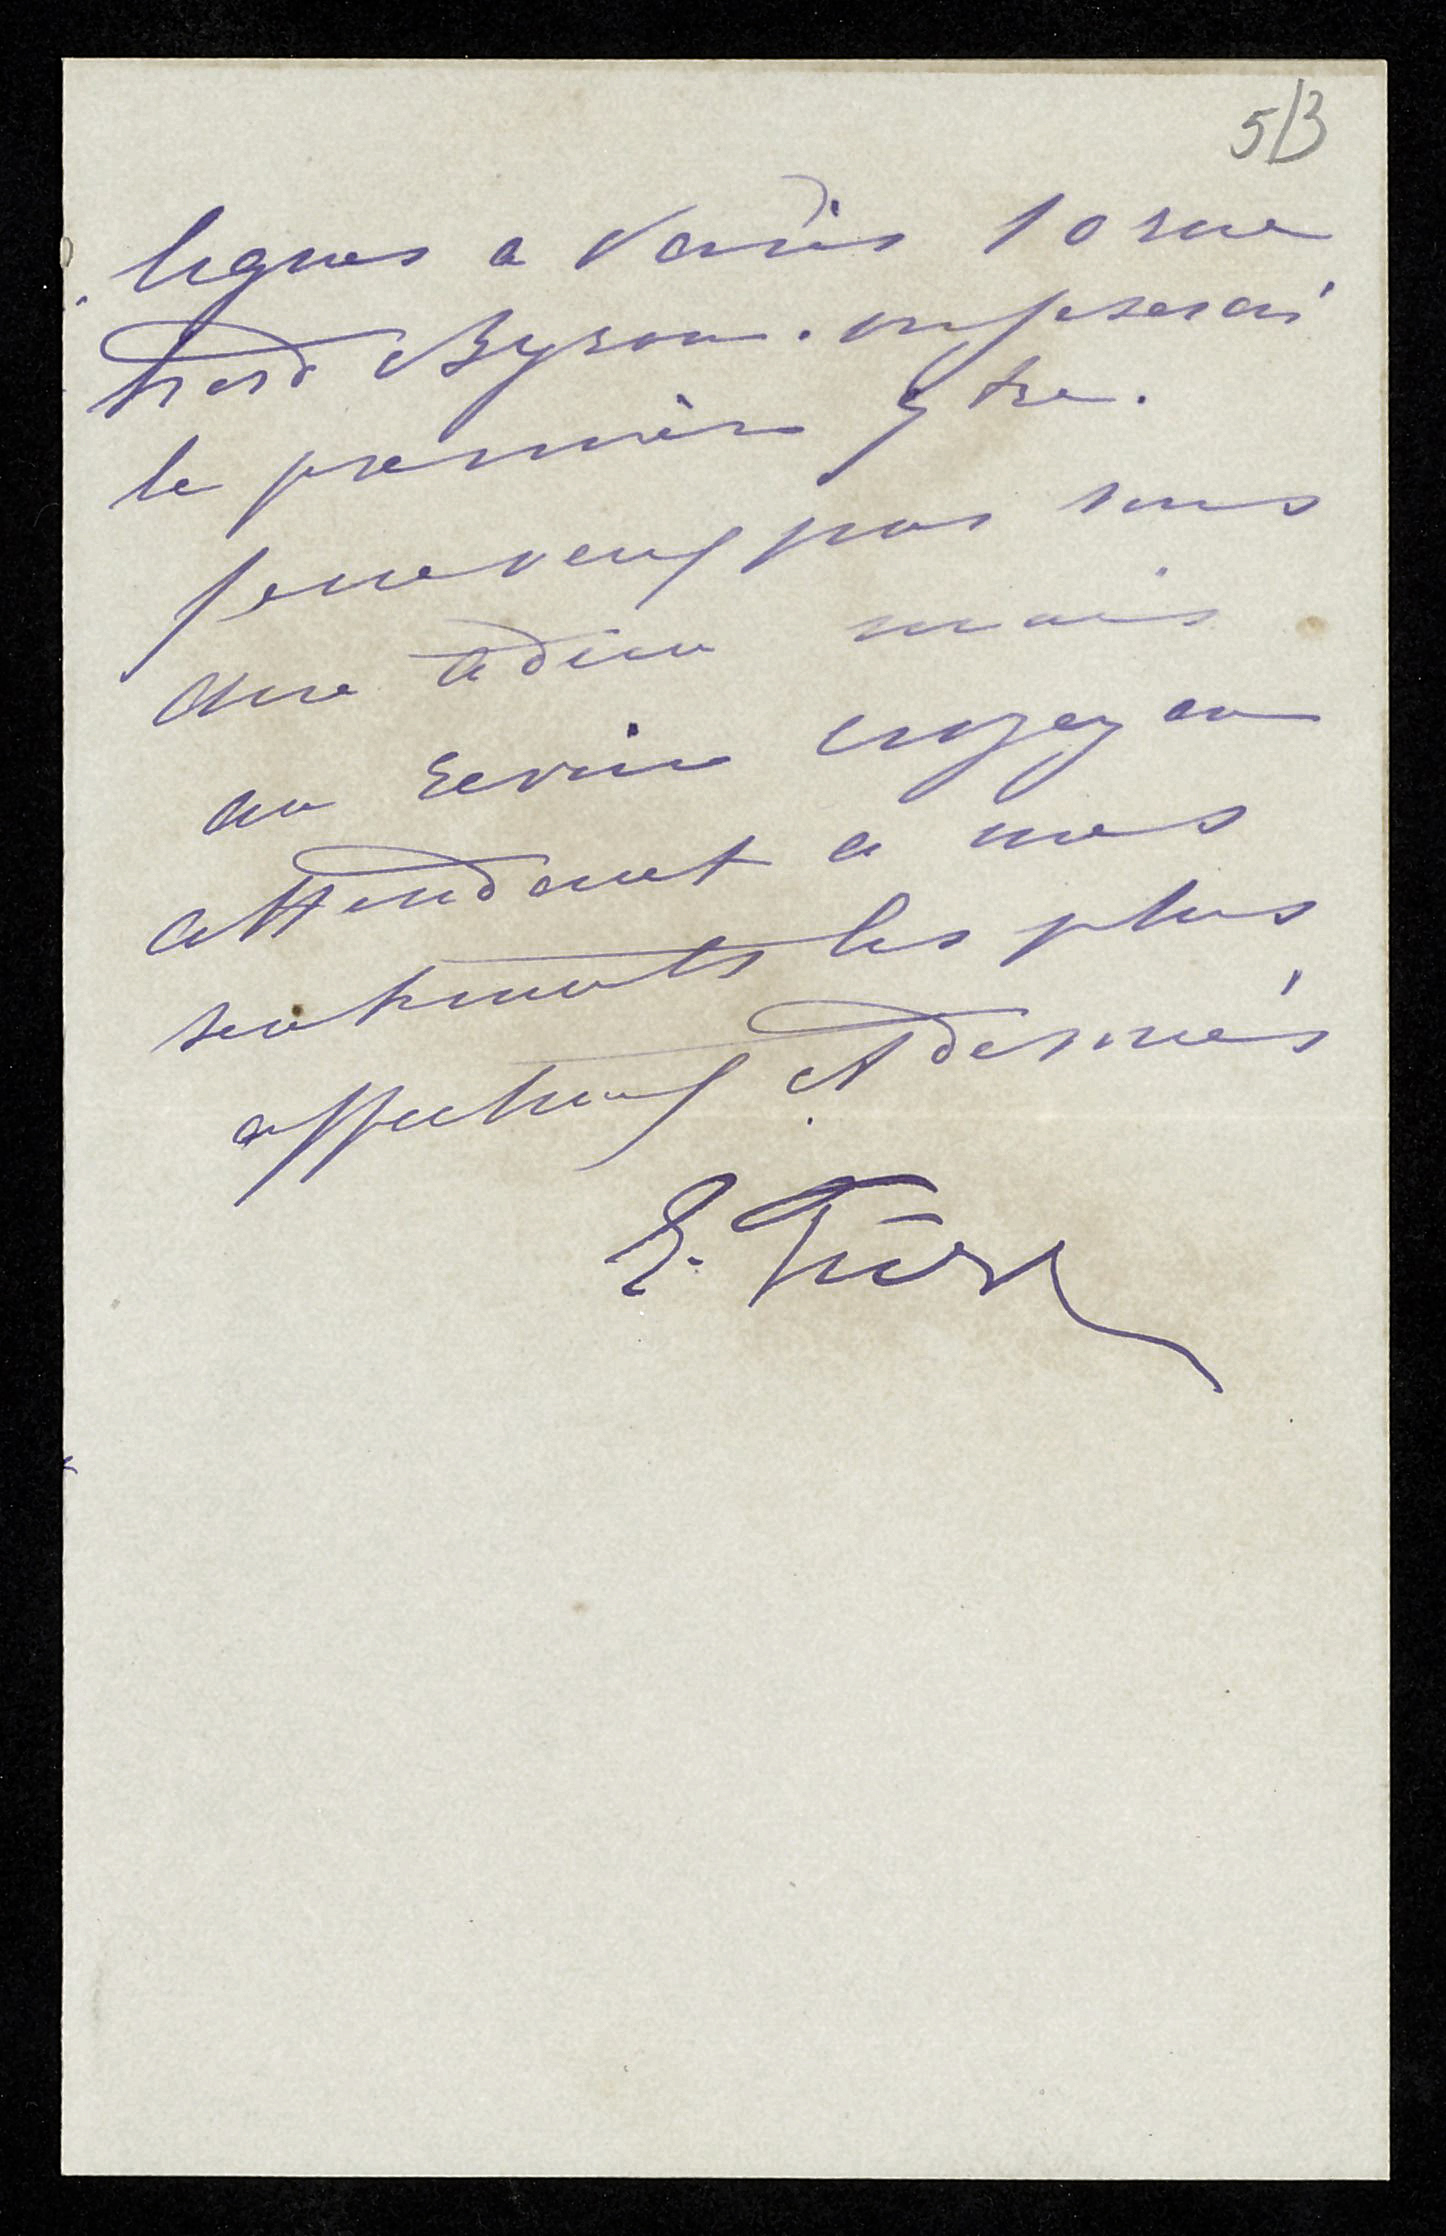 5/3
lignes a Paris 10 rue
Lord Byron. ou je serai
le premier 9bre.
je ne veux pas vous
dire adieu mais
au revoir croyez en
attendant a mes
sentiments les plus
affectueux et devoués
E.